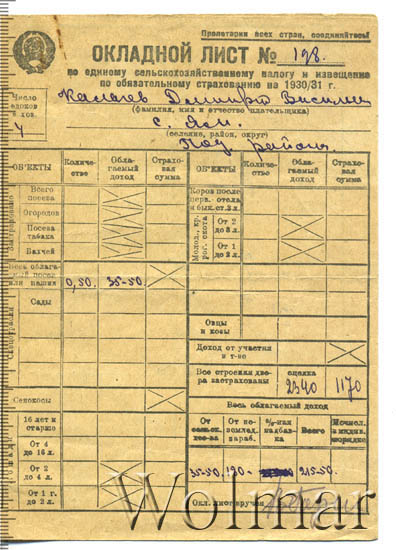 Пролетарии всех стран, соединяйтесь!
ОКЛАДНОЙ ЛИСТ № 198.
по единому сельскохозяйственному налогу и извещение
по обязательному страхованию на 1930/31 г.
Число едоков в хоз. 4
Дмитр
(фамилия, имя и отчество плательщика)
с.
(селение, район, округ)
Под. района.
ОБ'ЕКТЫ Количество Облагаемый доход Страховая сумма ОБ'ЕКТЫ Количество Облагаемый доход Страховая сумма
Всего посева
Огородов
Посева табака
Бахчей
Коров после перв. отела и бык. от 3 л.
Молод. кр. рог. скота
От 2 до 3 л.
От 1 до 2 л.
Весь облагаемый посев или пашня 0,50. 35-50.
Сады
Овцы и козы
Доход от участия в т-ве
Все строения двора застрахованы оценка 2340 1170
Сенокосы
Весь облагаемый доход
16 лет и старше
От 4 до 16 л.
От 2 до 4 л.
От 1 г. до 2 л.
От сельск. хоз-ва От незем­лед. зараб. %-ная надбавка Всего Исчисл. в индив. порядке
35-50. 180- 215-50.
Окл. лист вручен
Wolmar